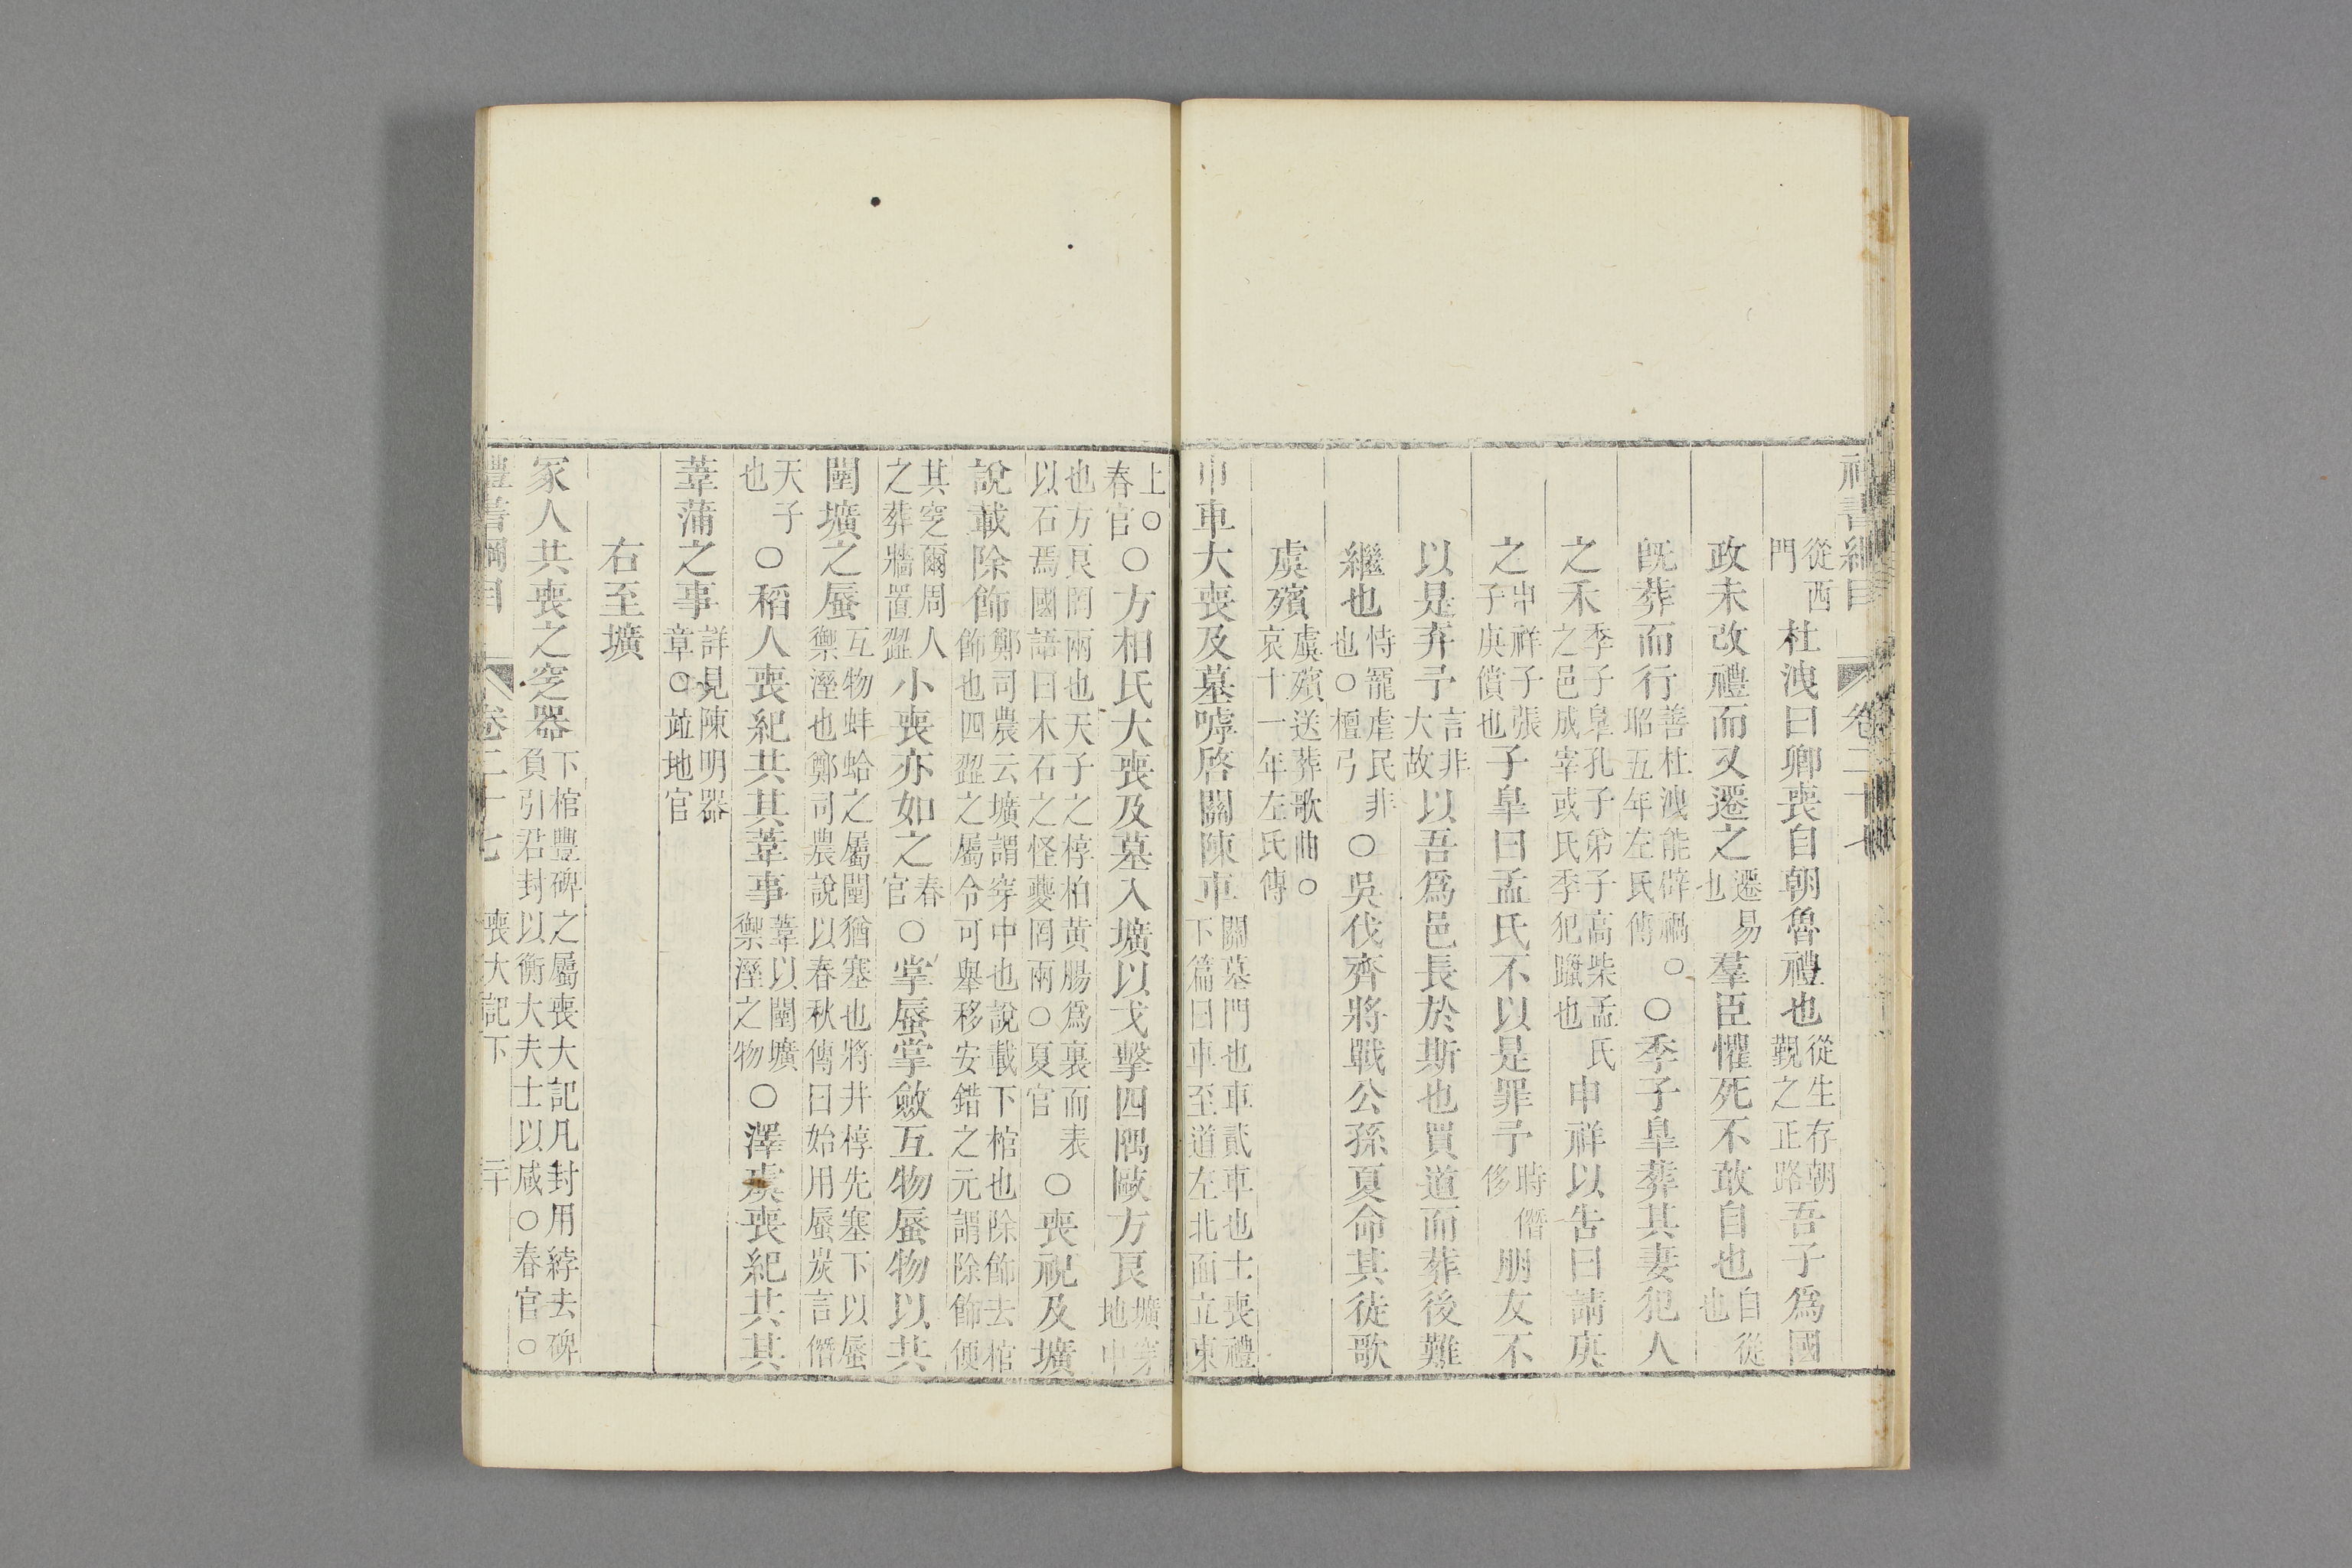 禮書綱目 卷二十七
從西門杜洩曰卿喪自朝魯禮也從生存朝覲之正路吾子爲國
政未改禮而又遷之遷易也羣臣懼死不敢自也自從也
旣葬而行善杜洩能辟禍昭五年左氏傳。〇季子皐葬其妻犯人
之禾季子皐孔子弟子高柴孟氏之邑成宰或氏季犯躐也申祥以告曰請庚
之申祥子張子庚償也子皐曰孟氏不以是罪予時僭侈朋友不
以是弃予言非大故以吾爲邑長於斯也買道而葬後難
繼也恃寵虐民非也〇檀弓〇吳伐齊將戰公孫夏命其徒歌
虞殯虞殯送葬歌曲。哀十一年左氏傳
巾車大喪及墓嘑啓關陳車關墓門也車貳車也士喪禮下篇曰車至道左北面立東
上〇春官〇方相氏大喪及墓入壙以戈擊四隅敺方良壙穿地中
也方良罔兩也天子之椁柏黃腸爲裏而表以石焉國語曰木石之怪夔罔兩〇夏官〇喪祝及壙
說載除飾鄭司農云壙謂穿中也說載下棺也除飾去棺飾也四翣之屬令可舉移安錯之元謂除飾便
其窆爾周人之葬牆置翣小喪亦如之春官〇掌蜃掌斂互物蜃物以共
闉壙之蜃互物蚌蛤之屬闉猶塞也將井椁先塞下以蜃禦溼也鄭司農說以春秋傳曰始用蜃炭言僭
天子也〇稻人喪紀共其葦事葦以闉壙禦溼之物〇澤虞喪紀共其
葦蒲之事詳見陳明器章〇竝地官
右至壙
冢人共喪之窆器下棺豐碑之屬喪大記凡封用綍去碑負引君封以衡大夫士以咸〇春官〇
禮書綱目 卷二十七 喪大記下 二十